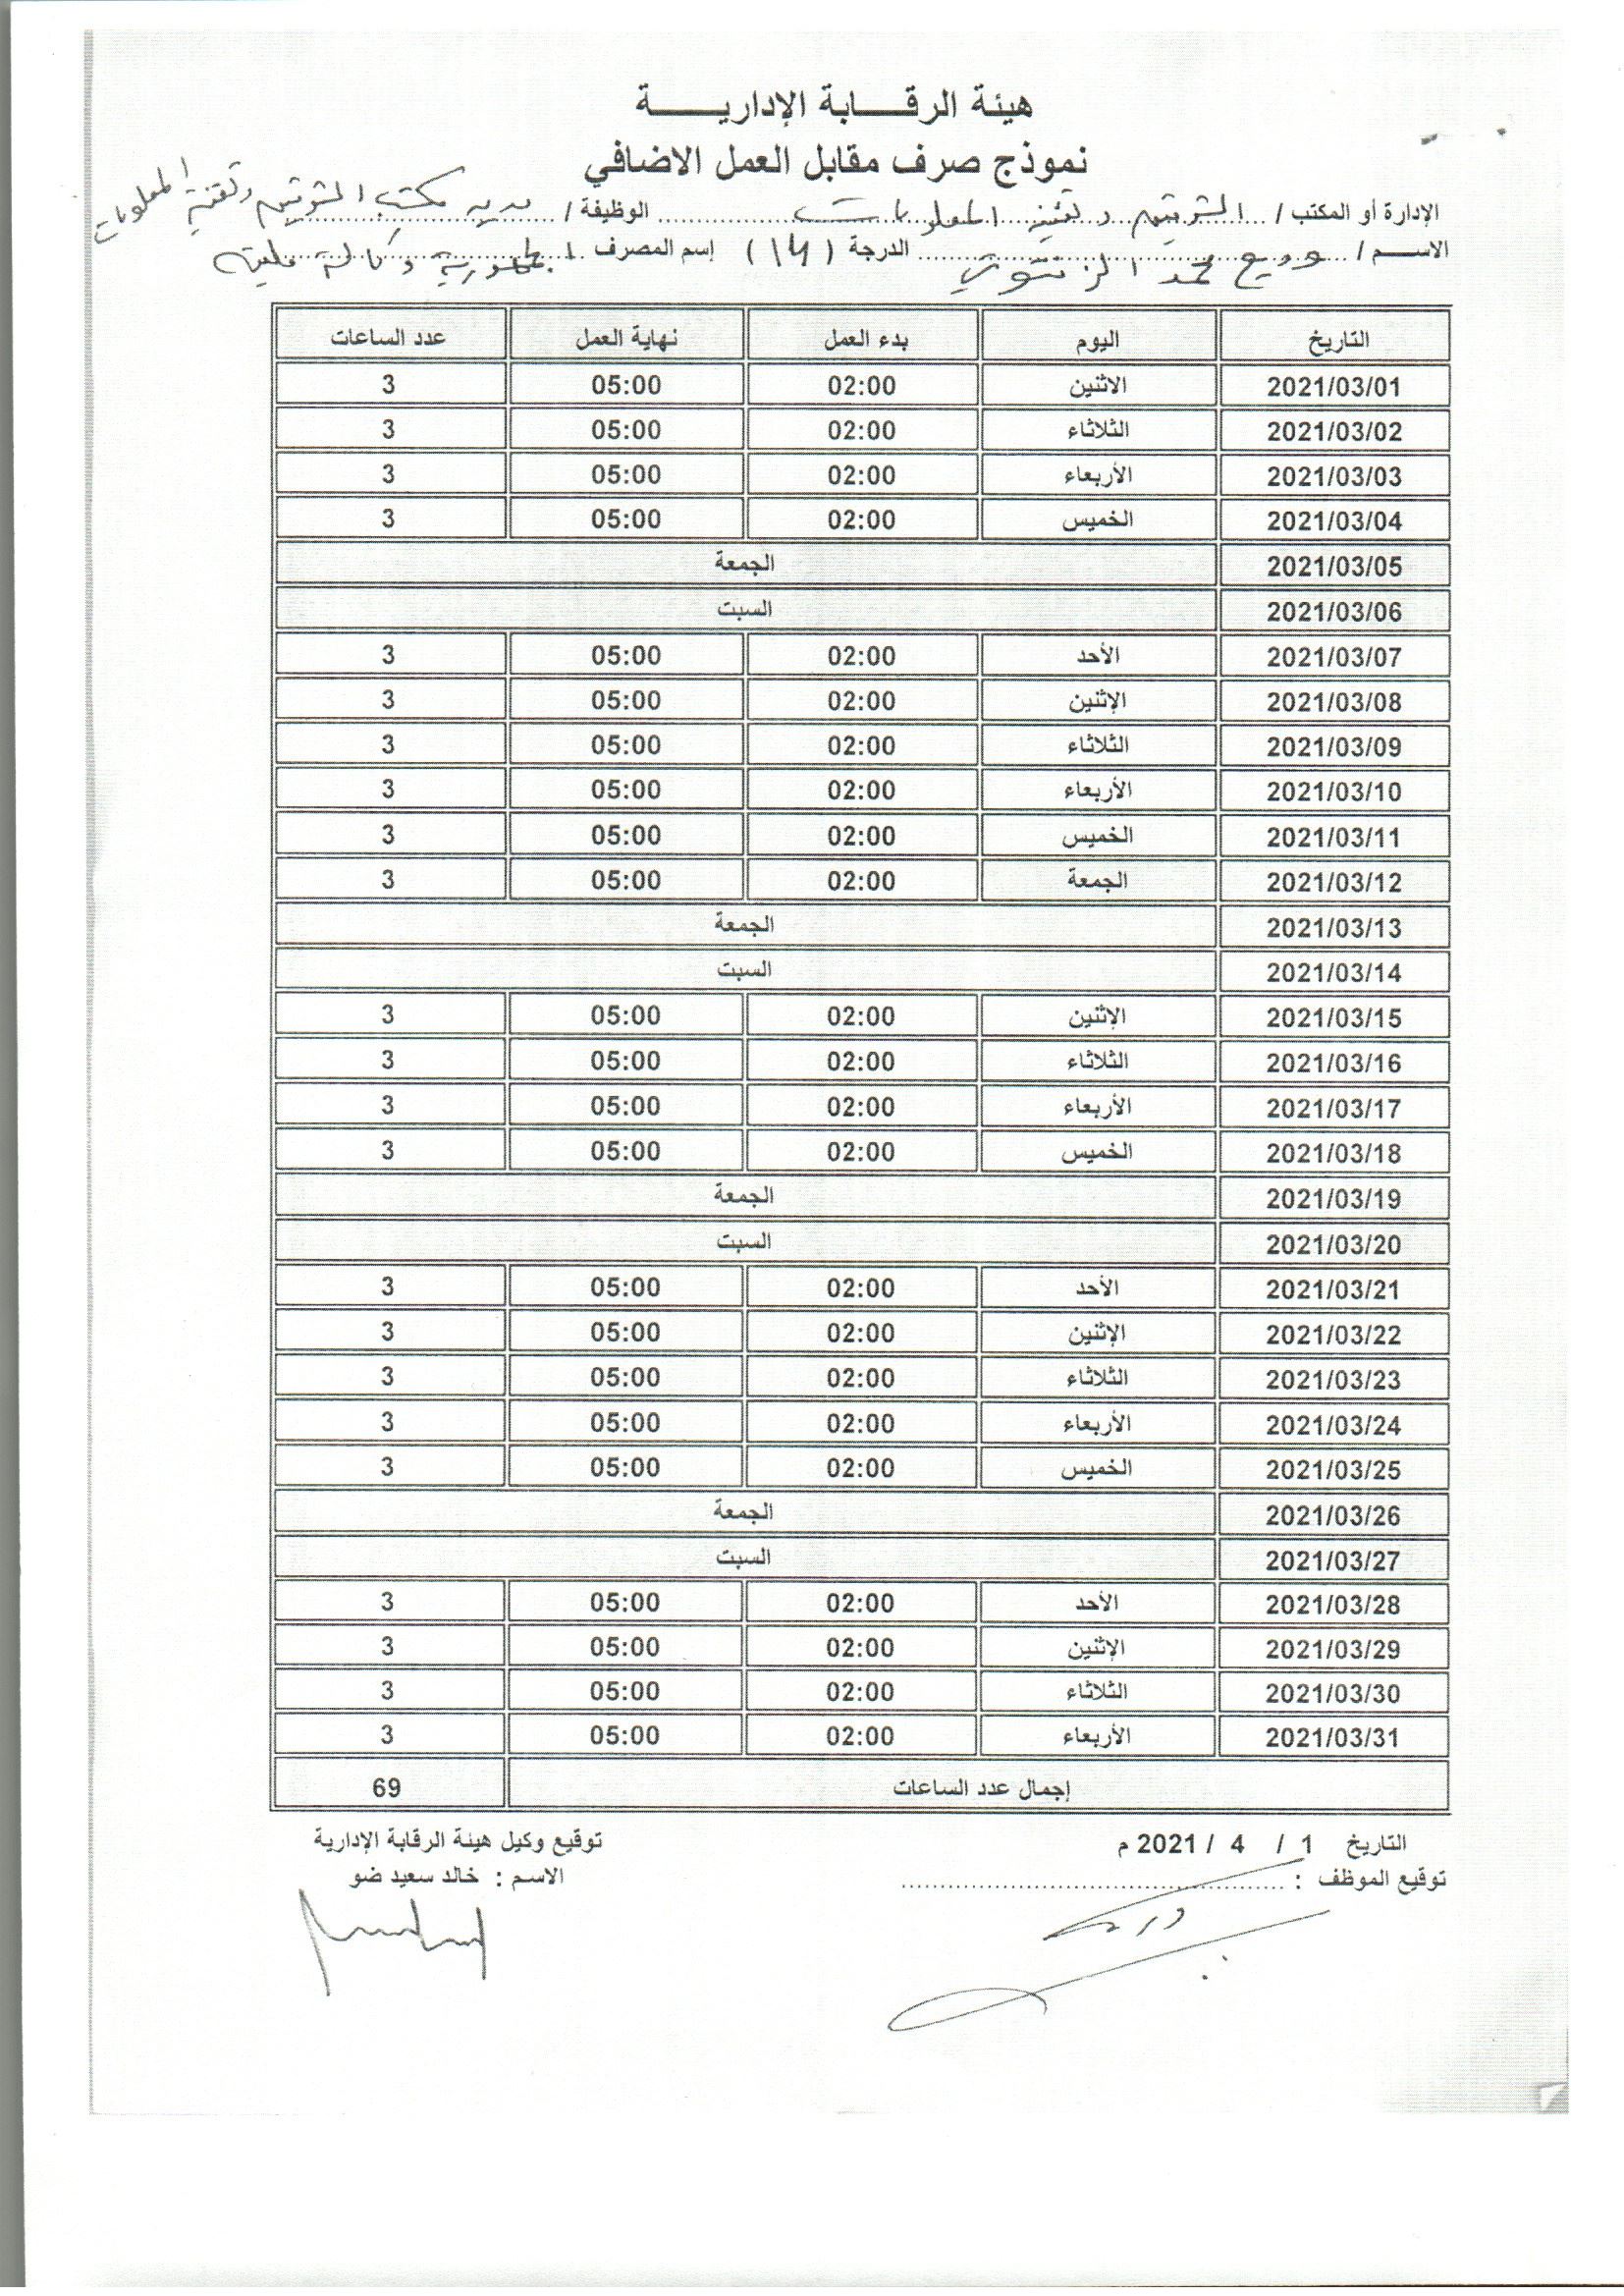 هيئة الرقـــابة الإداريـــــة
نموذج صرف مقابل العمل الاضافي
الإدارة أو المكتب / التوثيق وتقنية المعلومات الوظيفة / مدير مكتب التوثيق وتقنية المعلومات
الاســم / محمد الدرجة (14) إسم المصرف الجمهورية وكالة
التاريخ اليوم بدء العمل نهاية العمل عدد الساعات
2021/03/01 الاثنين 02:00 05:00 3
2021/03/02 الثلاثاء 02:00 05:00 3
2021/03/03 الأربعاء 02:00 05:00 3
2021/03/04 الخميس 02:00 05:00 3
2021/03/05 الجمعة
2021/03/06 السبت
2021/03/07 الأحد 02:00 05:00 3
2021/03/08 الإثنين 02:00 05:00 3
2021/03/09 الثلاثاء 02:00 05:00 3
2021/03/10 الأربعاء 02:00 05:00 3
2021/03/11 الخميس 02:00 05:00 3
2021/03/12 الجمعة 02:00 05:00 3
2021/03/13 الجمعة
2021/03/14 السبت
2021/03/15 الإثنين 02:00 05:00 3
2021/03/16 الثلاثاء 02:00 05:00 3
2021/03/17 الأربعاء 02:00 05:00 3
2021/03/18 الخميس 02:00 05:00 3
2021/03/19 الجمعة
2021/03/20 السبت
2021/03/21 الأحد 02:00 05:00 3
2021/03/22 الإثنين 02:00 05:00 3
2021/03/23 الثلاثاء 02:00 05:00 3
2021/03/24 الأربعاء 02:00 05:00 3
2021/03/25 الخميس 02:00 05:00 3
2021/03/26 الجمعة
2021/03/27 السبت
2021/03/28 الأحد 02:00 05:00 3
2021/03/29 الإثنين 02:00 05:00 3
2021/03/30 الثلاثاء 02:00 05:00 3
2021/03/31 الأربعاء 02:00 05:00 3
إجمال عدد الساعات 69
التاريخ 1 / 4 / 2021 م توقيع وكيل هيئة الرقابة الإدارية
توقيع الموظف : الاسم : خالد سعيد ضو